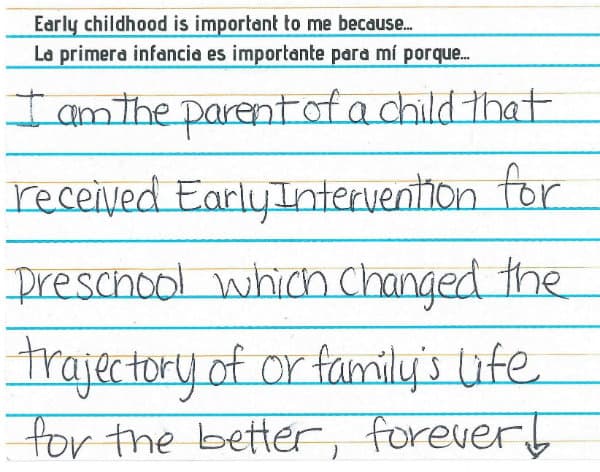 Early childhood is important to me because...
La primera infancia es importante para mí porque...
I am the parent of a child that
received Early Intervention for
preschool which changed the
trajectory of or family's life
for the better, forever↓